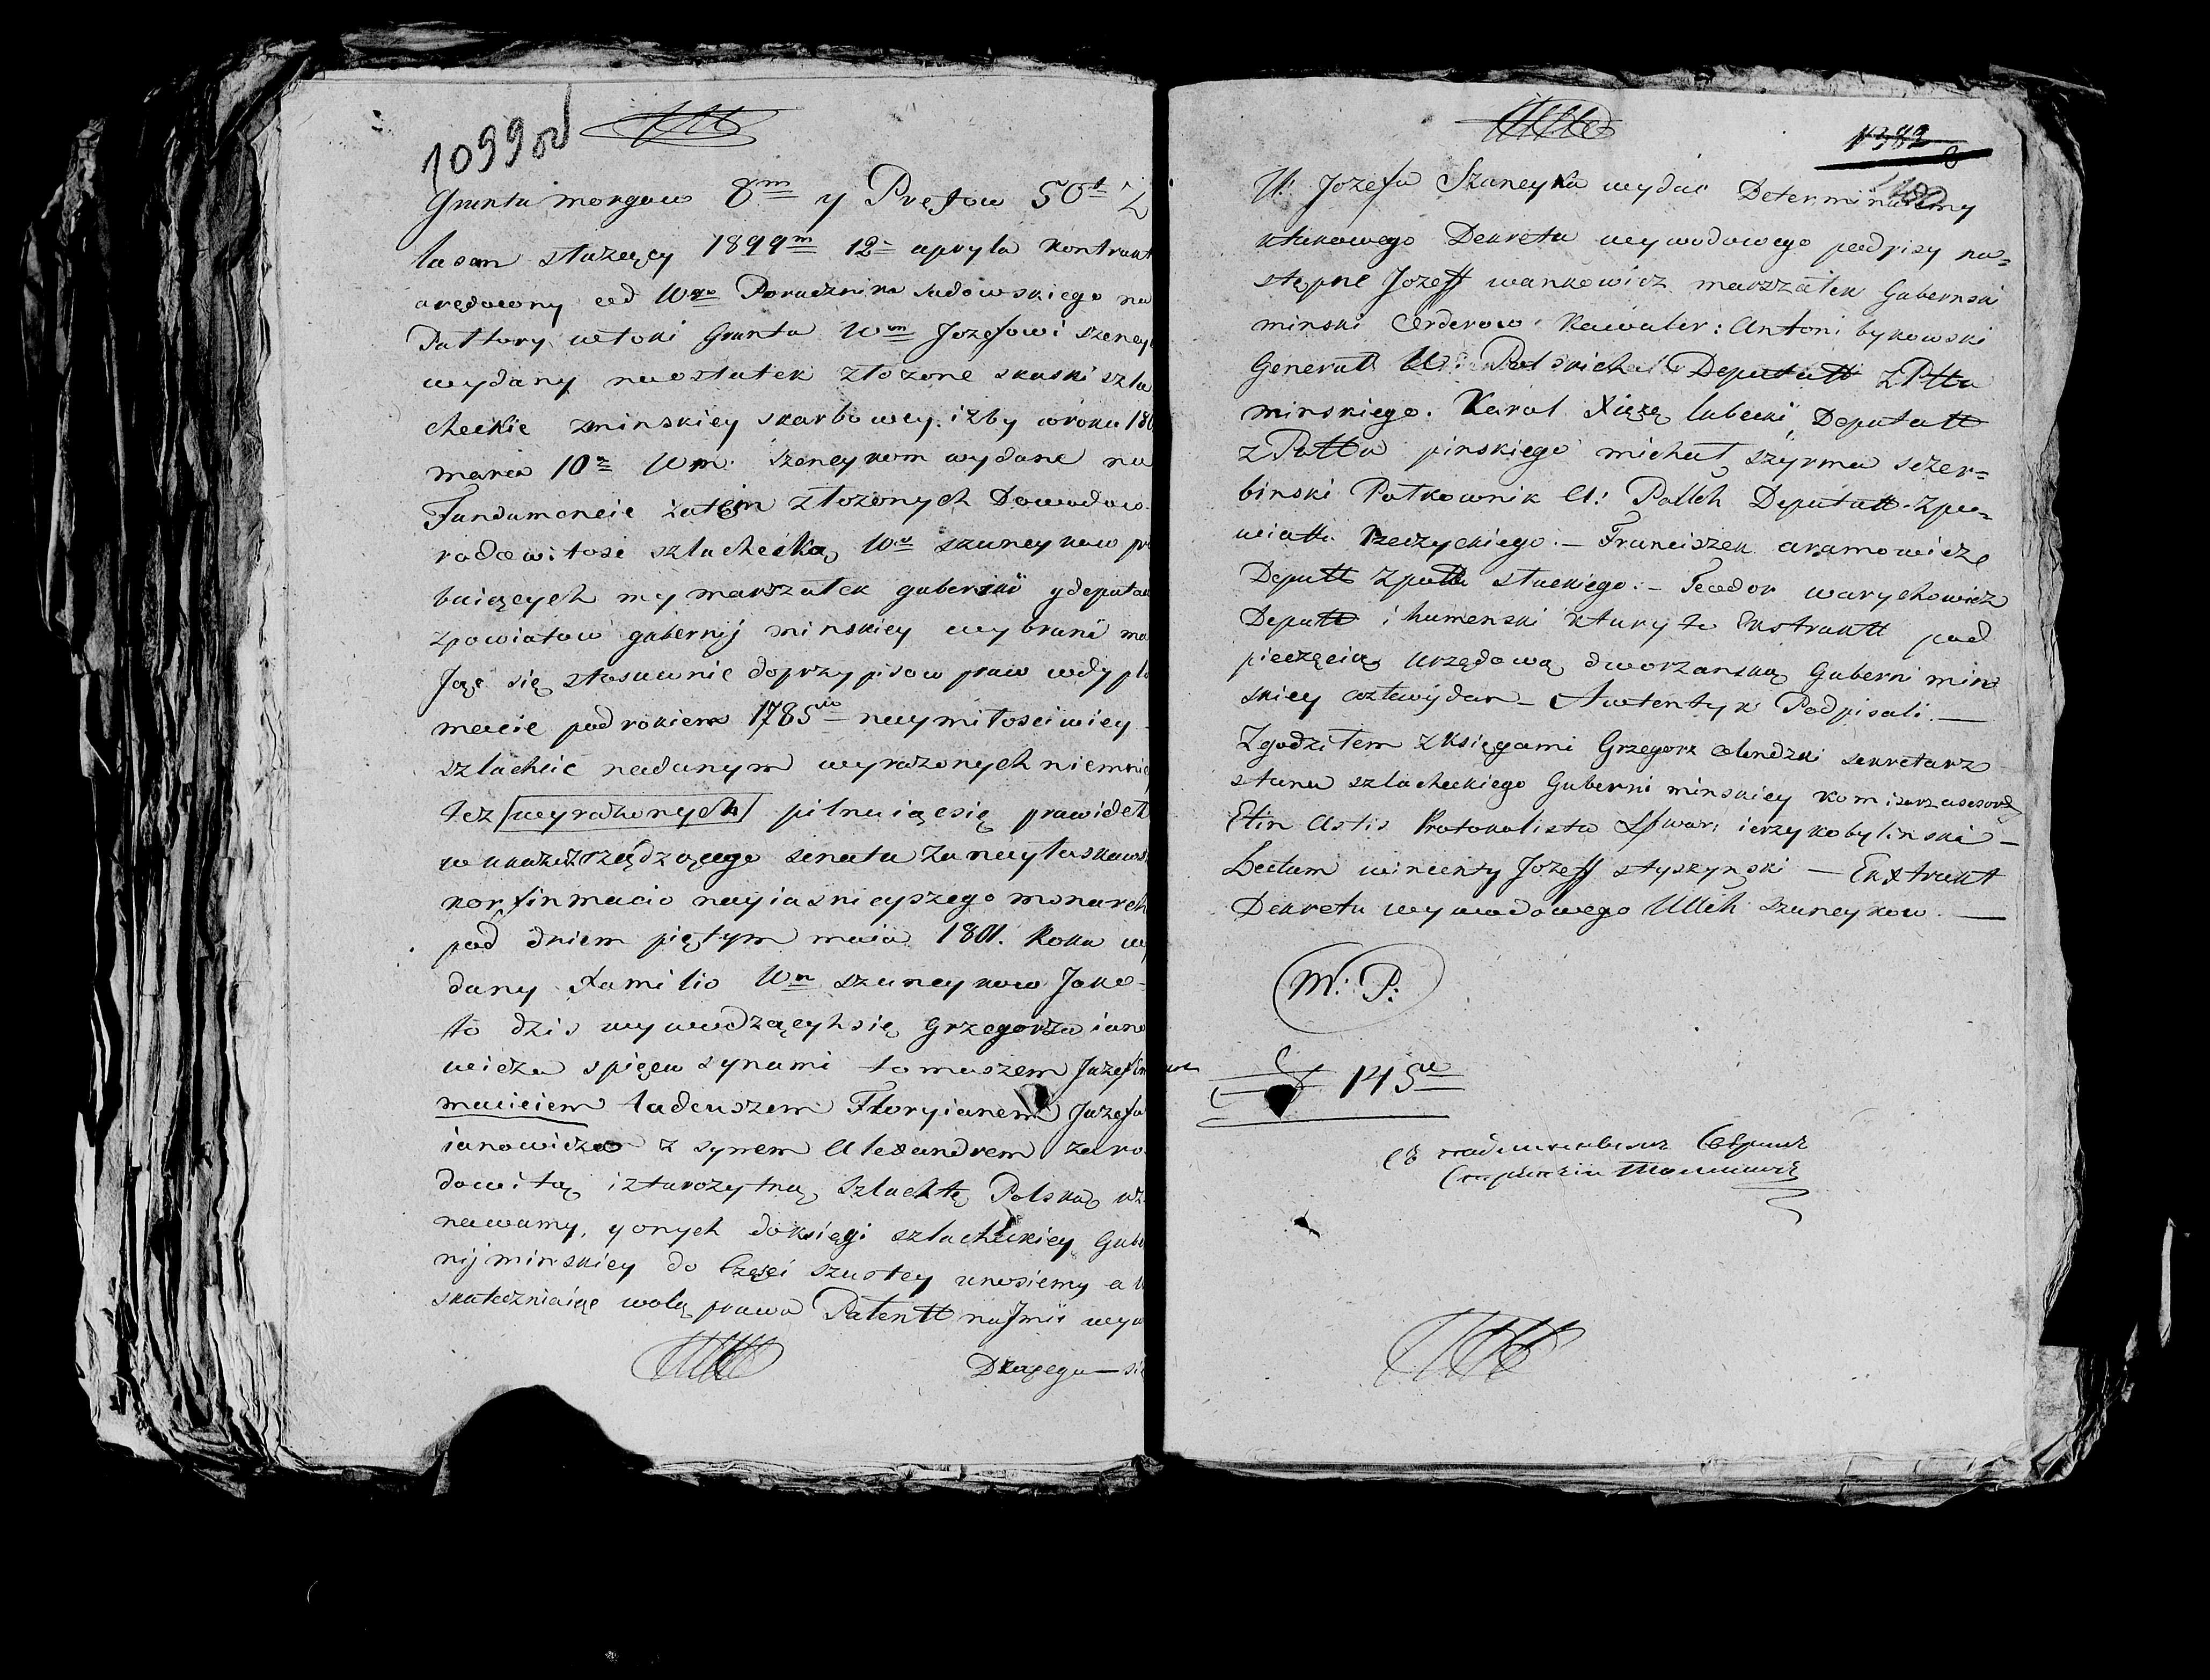 1099
Grunta morgow 8m y Prętow 50t Z
lasem służący 1899m 12 apryla Kontrakt
arędowny od Wgo Porucznika sadowskiego na
Pułtory włoki Grunta Wm Jozefowi szeney
wydany naostatek złozone skaski szla
checkie zminskiey skarbowey izby wroku 180
marca 10 Wm Szeneykom wydane na
Fundamencie zatym złozonych Dowodow
rodowitosc szlachecką Ww szuneykow pro
buiących my marszałek gubernski y deputa
zpowiatow gubernij minskiey wybrani ma
Jąc się stosownie doprzypisow praw wdyplo
macie podrokiem 1785 naymiłosciwiey
szlachcie nadanym wyrazonych niemniey
tez wyrazonych pilnuiącsię prawideł
w ukazie rządzącego senatu zanayłaskaws
konfirmacio nayiasnieyszego monarch
pod dniem piętym maia 1801. Roku wy
dany Familio Wm szuneykow Jako
to dzis wywodzącychsię Grzegorza iano
wicza spięcu synami tomaszem Jozefem
maciciem tadeuszem Floryianem Jozefa
ianowicza z synem Alexandrem zaro
dowitą iztarozytną Szlachtę Polską uz
nawamy, yonych doksięgi szlacheckiey Gube
nij minskiey do Częsci szustey wnosiemy a
skuteczniaiąc wolą prawa Patentt naJmii wyw
Dłazego — sie
1382
W: Jozefa Szuneyka wydac Determinuiemy
ktukowego Dekretu wywodowego podpisy na=
stępne Jozeff wankowicz marszałek Gubernski
minski Orderow Kawaler: Antoni bykowski
Generał W: Polskich Deputatt zPttu
minskiego. Karol Xiążę lubecki, Deputatt
zPattu pinskiego michał szyrma sczer=
binski Pułkownik W: Pollch Deputatt zpo=
wiattu Rzeczyckiego. — Franciszek aramowicz
Deputt zpattu słuckiego. — Teodor warychowicz
Deputt ihumenski ktury to Ekstraktt pod
pieczęcią Urzędową dworzanską Guberni min
skiey wydan — Awtentyk Podpisali. —
Zgodziłem zksięgami Grzegorz olendzki sekretarz
stanu szlacheckiego Guberni minskiey
Protokolista ierzy kobylinski —
Lectum wincenty Jozeff słyszynski — Extrakt
Dekretu wywodowego Ullch szuneykow. —
M: P:
145